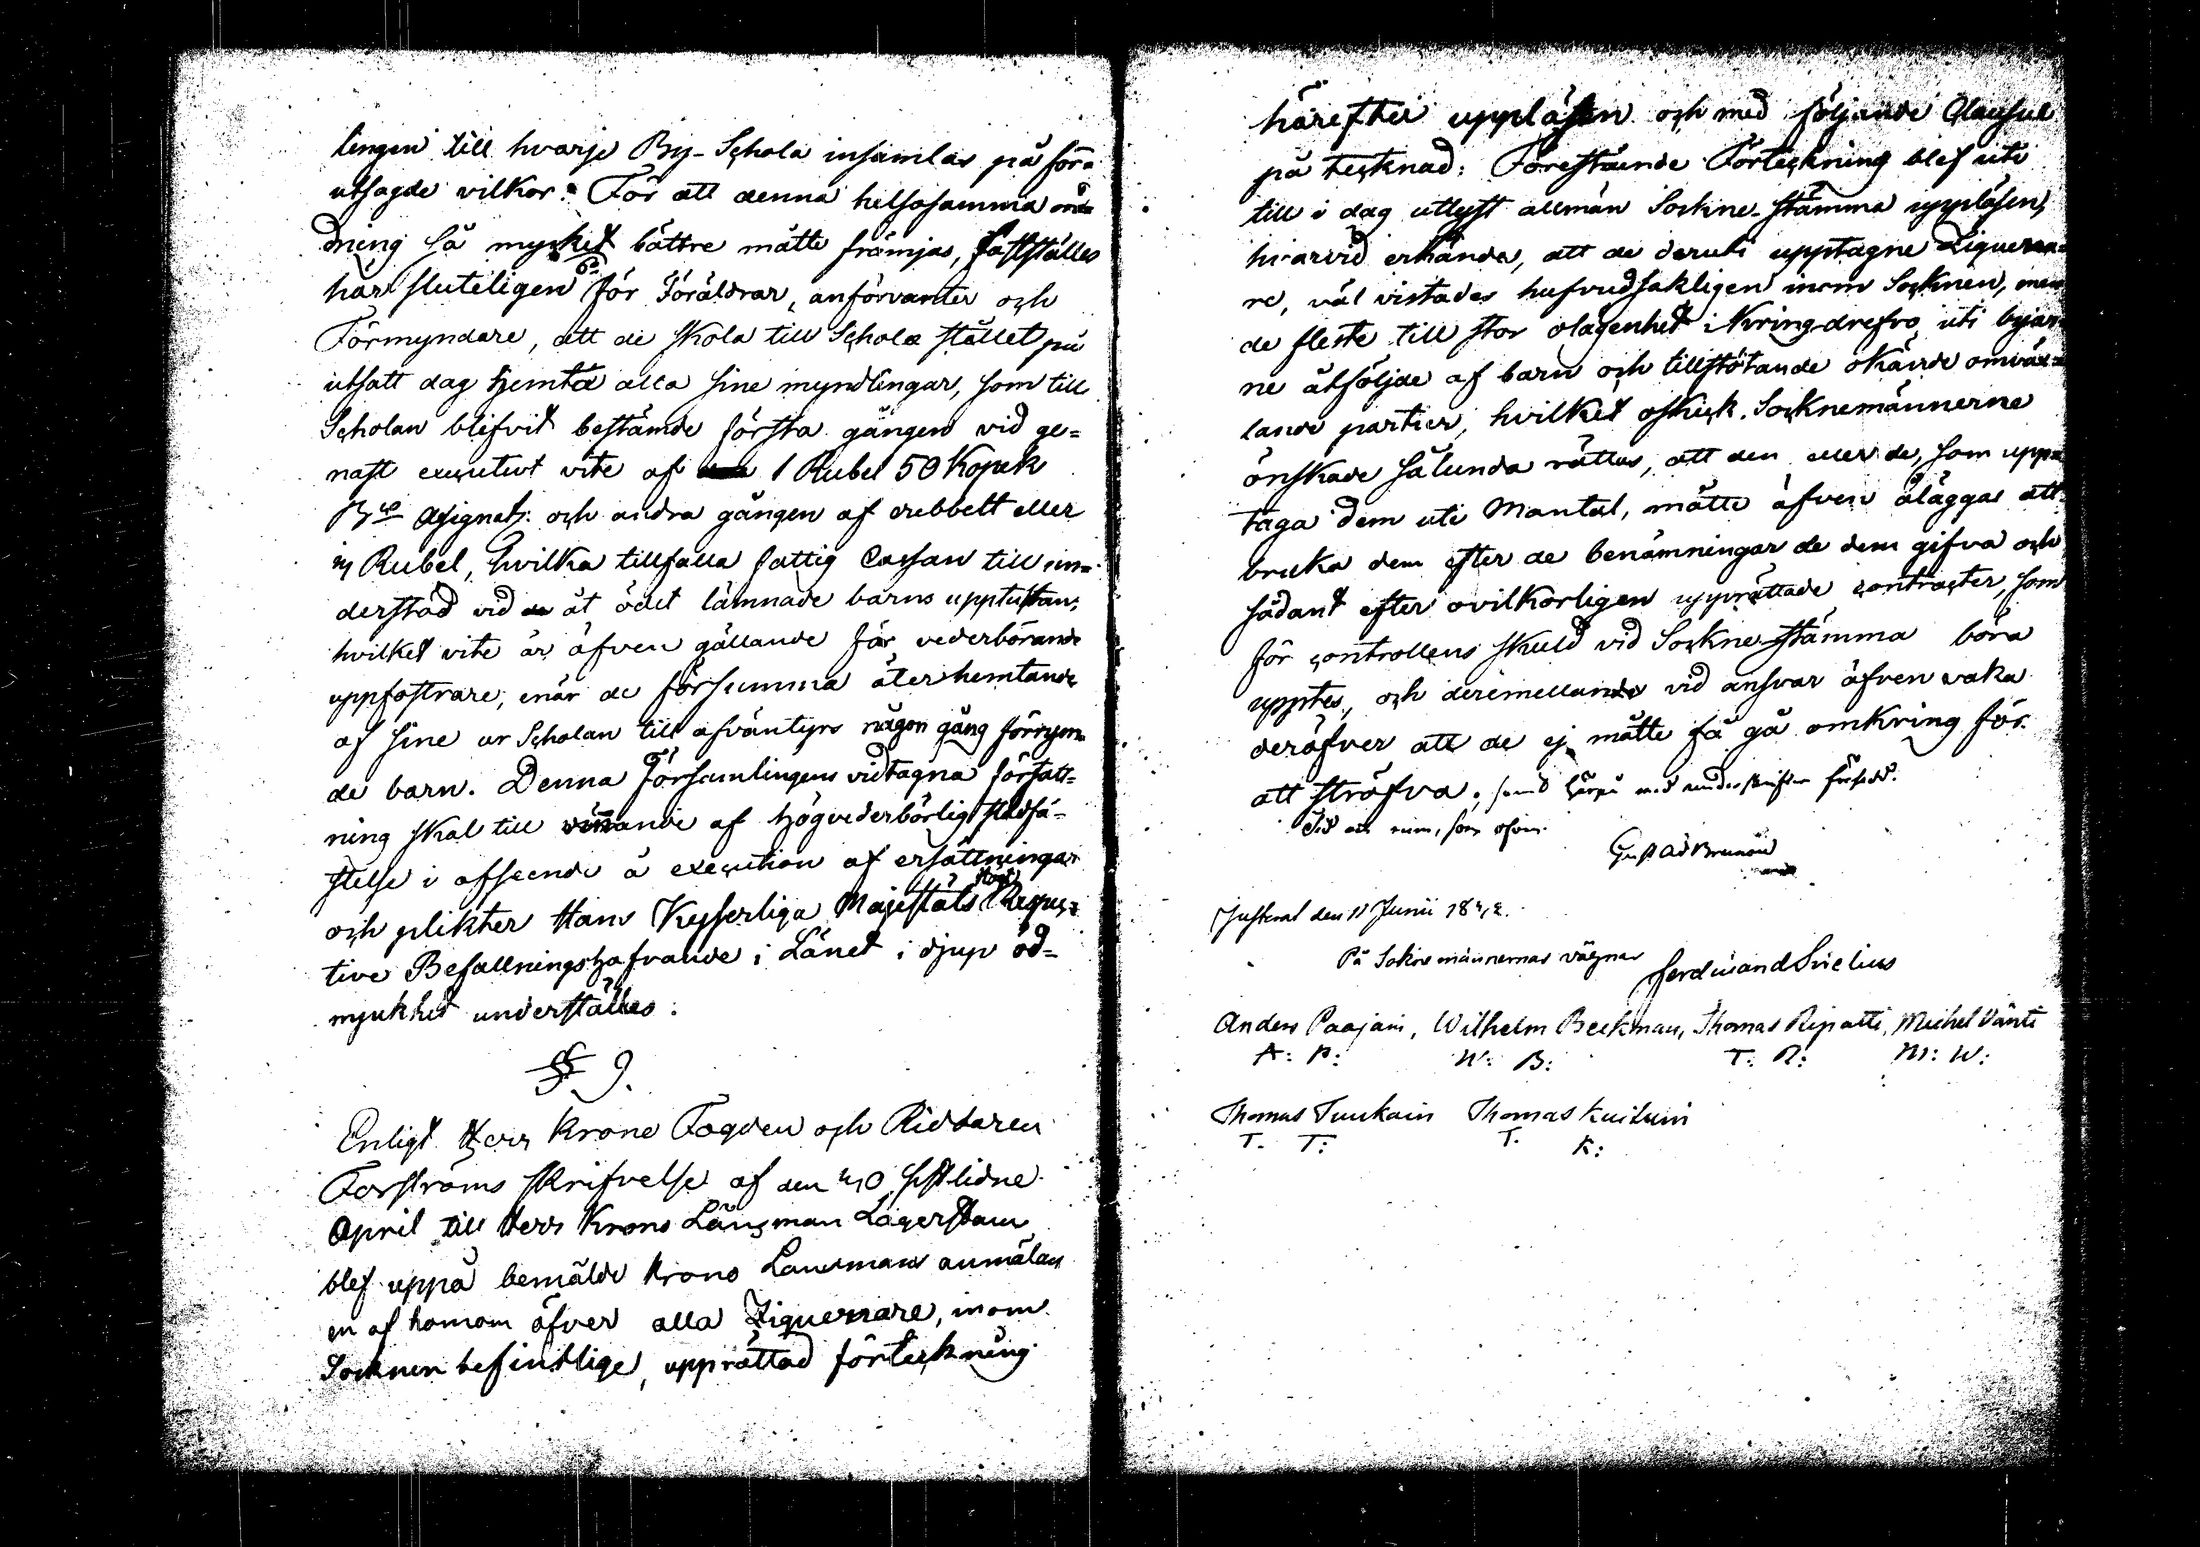 lingen till hvarje By-Schola insamlas på förr
utsagde vilkor. För att denna helsosamma ord-
dning så mycket bättre måtte främjas, fastställes
här sluteligen för Föräldrar, anförvanter och
Förmyndare, att de skola till Schola stället på
utsatt dag hemta alla sine myndlingar, som till
Scholan blifvit bestämde första gången vid ge-
nast executivt vite af 1 Rubel 50 Kopek
B:co Assignats: och andra gången af dubbelt eller
3 Rubel, hvilka tillfalla fattig Cassan till un-
derstöd vid åt ödet lämnade barns upptuktan;
hvilket vite är äfven gällande för vederbörande
uppfostrare, enär de försumma återhemtande
af sine ur Scholan till äfventyrs någon gång förrym-
de barn. Denna Församlingens vidtagna författ-
ning skal till vinnande af högvederbörlig stadfä-
stelse i afseende å execution af ersättningar
och plikter Hans Keyserliga Majestäts Högt Respec-
tive Befallningshafvande i Länet i djup öd-
mjukhet underställas:
§ 9.
Enligt Herr Krono Fogden och Riddaren
Forströms skrifvelse af den 30 sistlidne
April till Herr Krono Länsman Lagerstam
blef uppå bemälde Krono Länsmans anmälan
en af honom öfver alla Ziguenare, inom
Socknen befintlige, upprättad förteckning
härefter uppläsen och med följande Clausul
på tecknad: Förestående Förteckning blef uti
till i dag utlyst allmän Sockne-stämma uppläsen,
hvarvid erkändes, att de deruti upptagne Ziguena-
re, väl vistades hufvudsakligen inom Socknen, men
de fleste till stor olägenhet i kringdrefvo uti byar-
ne åtföljde af barn och tillstötande okände omväx-
lande partier, hvilket oskick Socknemännerne
önskade sålunda rättas, att den eller de, som upp-
taga dem uti Mantal, måtte äfven åläggas att
bruka dem efter de benämningar de dem gifva och
sådant efter ovilkorligen upprättade contracter, som
för controllens skuld vid Sockne-stämma böra
upptes, och deremellan vid ansvar äfven vaka
deröfver att de ej måtte få gå omkring för
att ströfva; samt härpå med underskrifter försedd.
Tid och rum, som ofvan.
Gustad Brunou
Justerat den 11 Junii 1842.
På Soknemännernas vägnar
Ferdinand Srelius
Anders Paajain, Wilhelm Beckman, Thomas Ripatti, Michel Vänti
A: P: W: B: T: R: M: W:
Thomas Tuukain Thomas Kuituin
T. T: T. K: